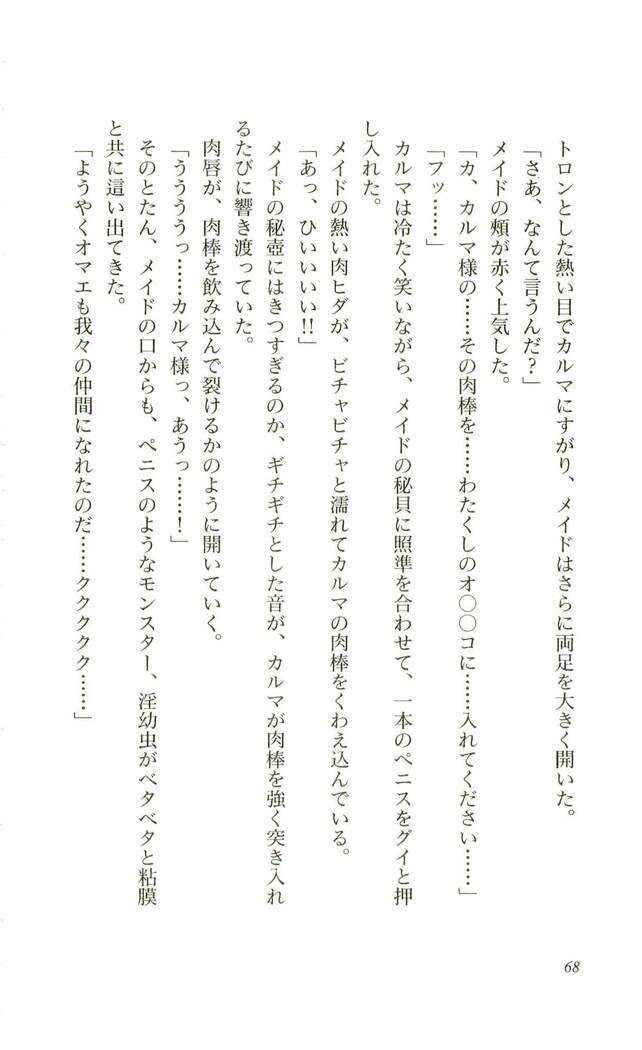 トロンとした熱い目でカルマにすがり、メイドはさらに両足を大きく開いた。
「さあ、なんて言うんだ？」
メイドの頬が赤く上気した。
「カ、カルマ様の……その肉棒を……わたくしのオ〇〇コに……入れてください……」
「フッ……」
カルマは冷たく笑いながら、メイドの秘貝に照準を合わせて、一本のペニスをグイと押
し入れた。
メイドの熱い肉ヒダが、ビチャビチャと濡れてカルマの肉棒をくわえ込んでいる。
「あっ、ひいいいい!!」
メイドの秘壺にはきつすぎるのか、ギチギチとした音が、カルマが肉棒を強く突き入れ
るたびに響き渡っていた。
肉唇が、肉棒を飲み込んで裂けるかのように開いていく。
「うううううっ……カルマ様っ、あうっ……！」
そのとたん、メイドの口からも、ペニスのようなモンスター、淫幼虫がベタベタと粘膜
と共に這い出てきた。
「ようやくオマエも我々の仲間になれたのだ……ククククク……」
68